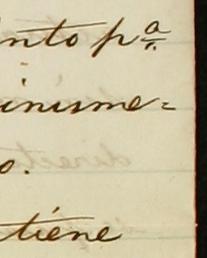 ento pª
inisme=
o.
tiene